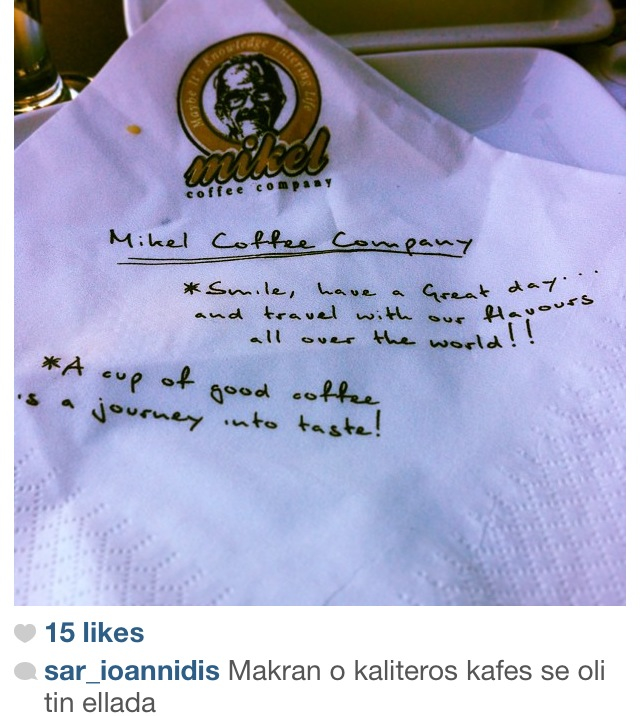 Maybe It's Knowledge Entering Life
mikel
coffee company
Mikel Coffee Company
*Smile, have a Great day...
and travel with our flavours
all over the world!!
*A cup of good coffee
is a journey into taste!
15 likes
sar_ioannidis Makran o kaliteros kafes se oli
tin ellada